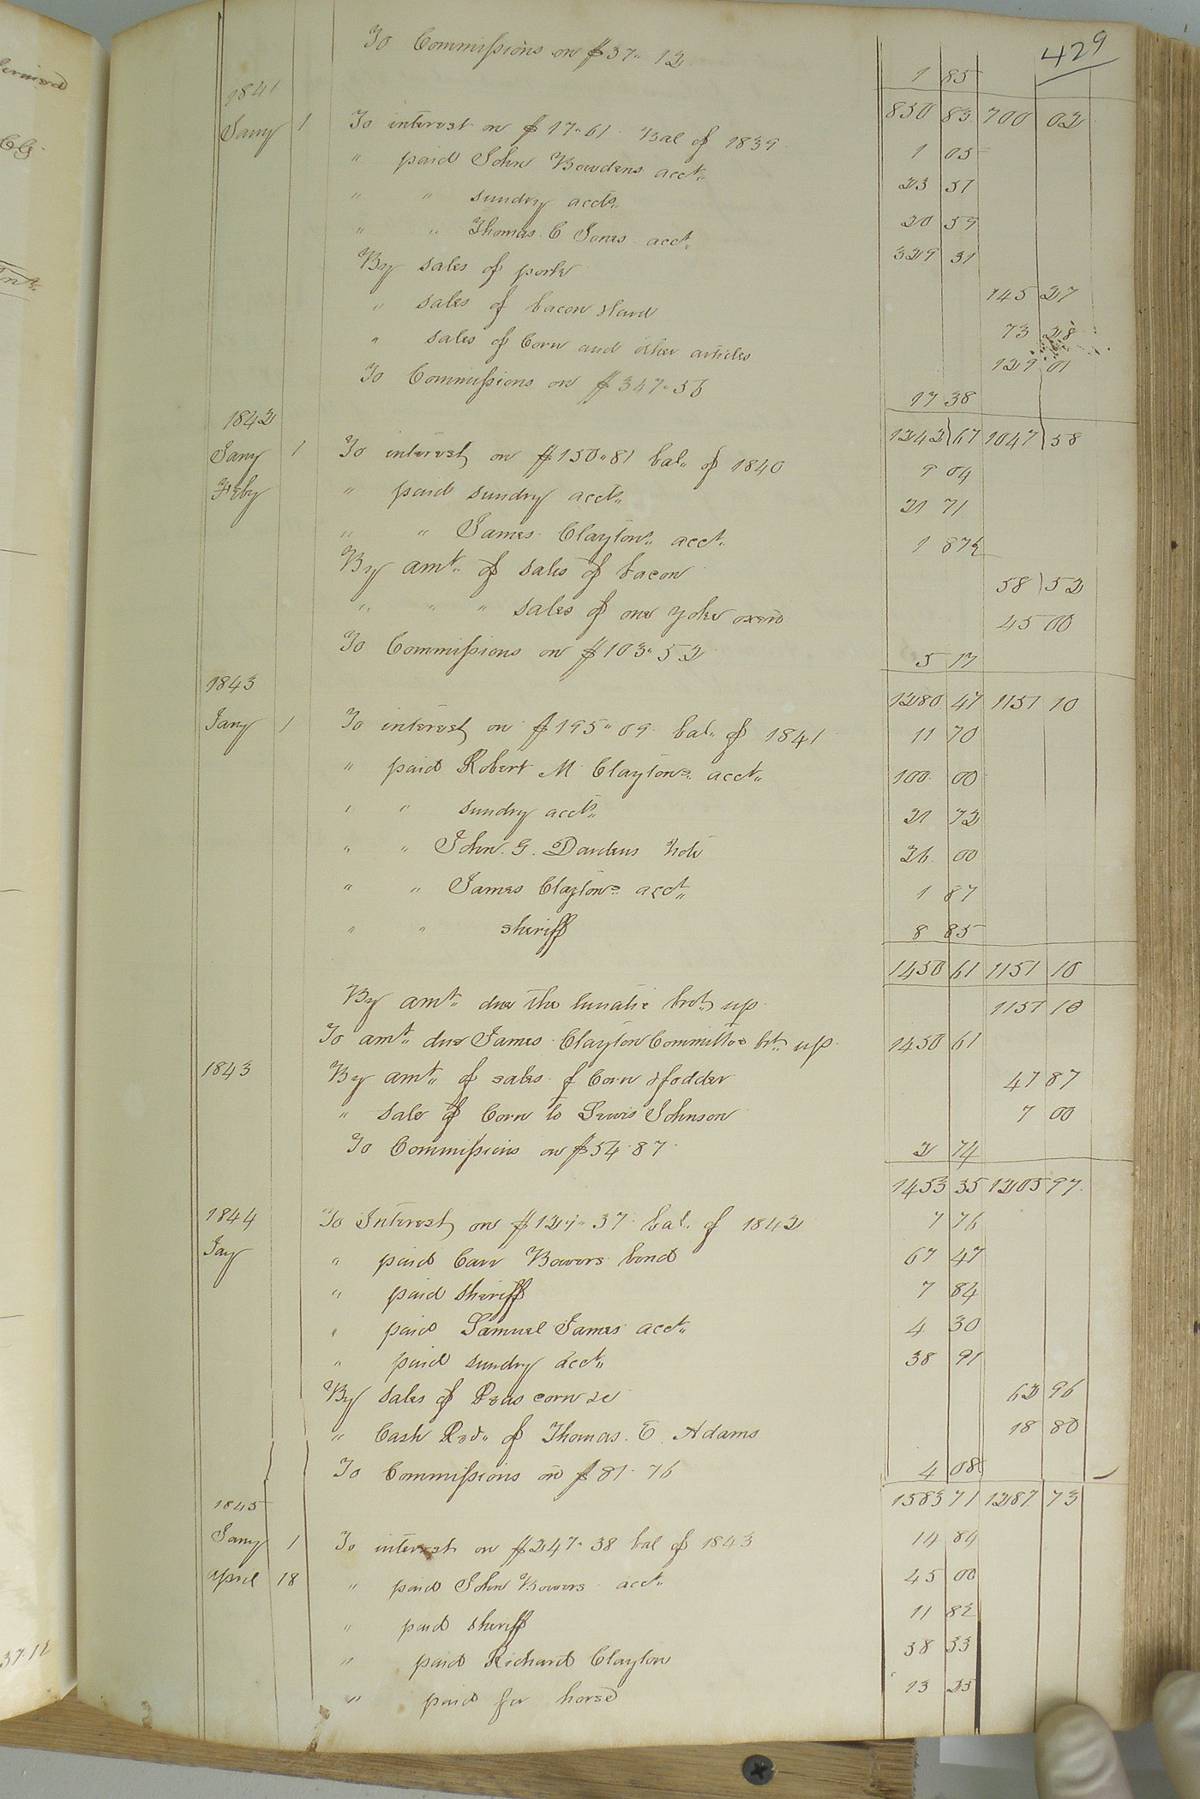 429
To Commissions on $37.12 1 85
1841 850 83 700 02
Jany 1 To interest on $17.61 Bal of 1839 1 05
" paid John Bowdens acct. 23 51
" " sundry accts. 20 59
" " Thomas C Jones acct. 329 31
By sales of pork 145 27
" sales of bacon & lard 73 28
" sales of Corn and other articles 129 01
To Commissions on $347.56 17 38
1842 1242 67 1047 58
Jany 1 To interest on $150.81 bal. of 1840 9 04
Feby " paid sundry accts. 21 71
" " James Claytons. acct. 1 87½
By amt. of sales of bacon 58 52
" " " sales of one yoke oxens 45 00
To Commissions on $103.52 5 17
1843 1280 47 1151 10
Jany 1 To interest on $195.09 bal. of 1841 11 70
" paid Robert M Claytons. acct. 100 00
" " sundry accts. 21 72
" " John. G. Dardens Note 26 00
" " James Claytons acct. 1 87
" " sheriff 8 85
1450 61 1151 10
By amt. due the lunatic brot. up 1151 10
To amt. due James Clayton Committee bt. up 1450 61
1843 By amt. of sales of Corn & fodder 47 87
" sale of Corn to Lewis Johnson 7 00
To Commissions on $54.87 2 74
1453 35 1205 97
1844 To Interest on $129.37 bal. of 1842 7 76
Jay " paid Carr Bowers bond 67 47
" paid sheriff 7 84
" paid Samuel James acct. 4 30
" paid sundry acct. 38 91
By sales of Peas corn &c 62 96
" Cash Recd. of Thomas. E. Adams 18 80
To Commissions on $81.76 4 08
1845 1583 71 1287 73
Jany 1 To interest on $247.38 bal of 1843 14 84
April 18 " paid John Bowers acct. 45 00
" paid sheriff 11 82
" paid Richard Clayton 38 33
" paid for horse 13 25
37.12